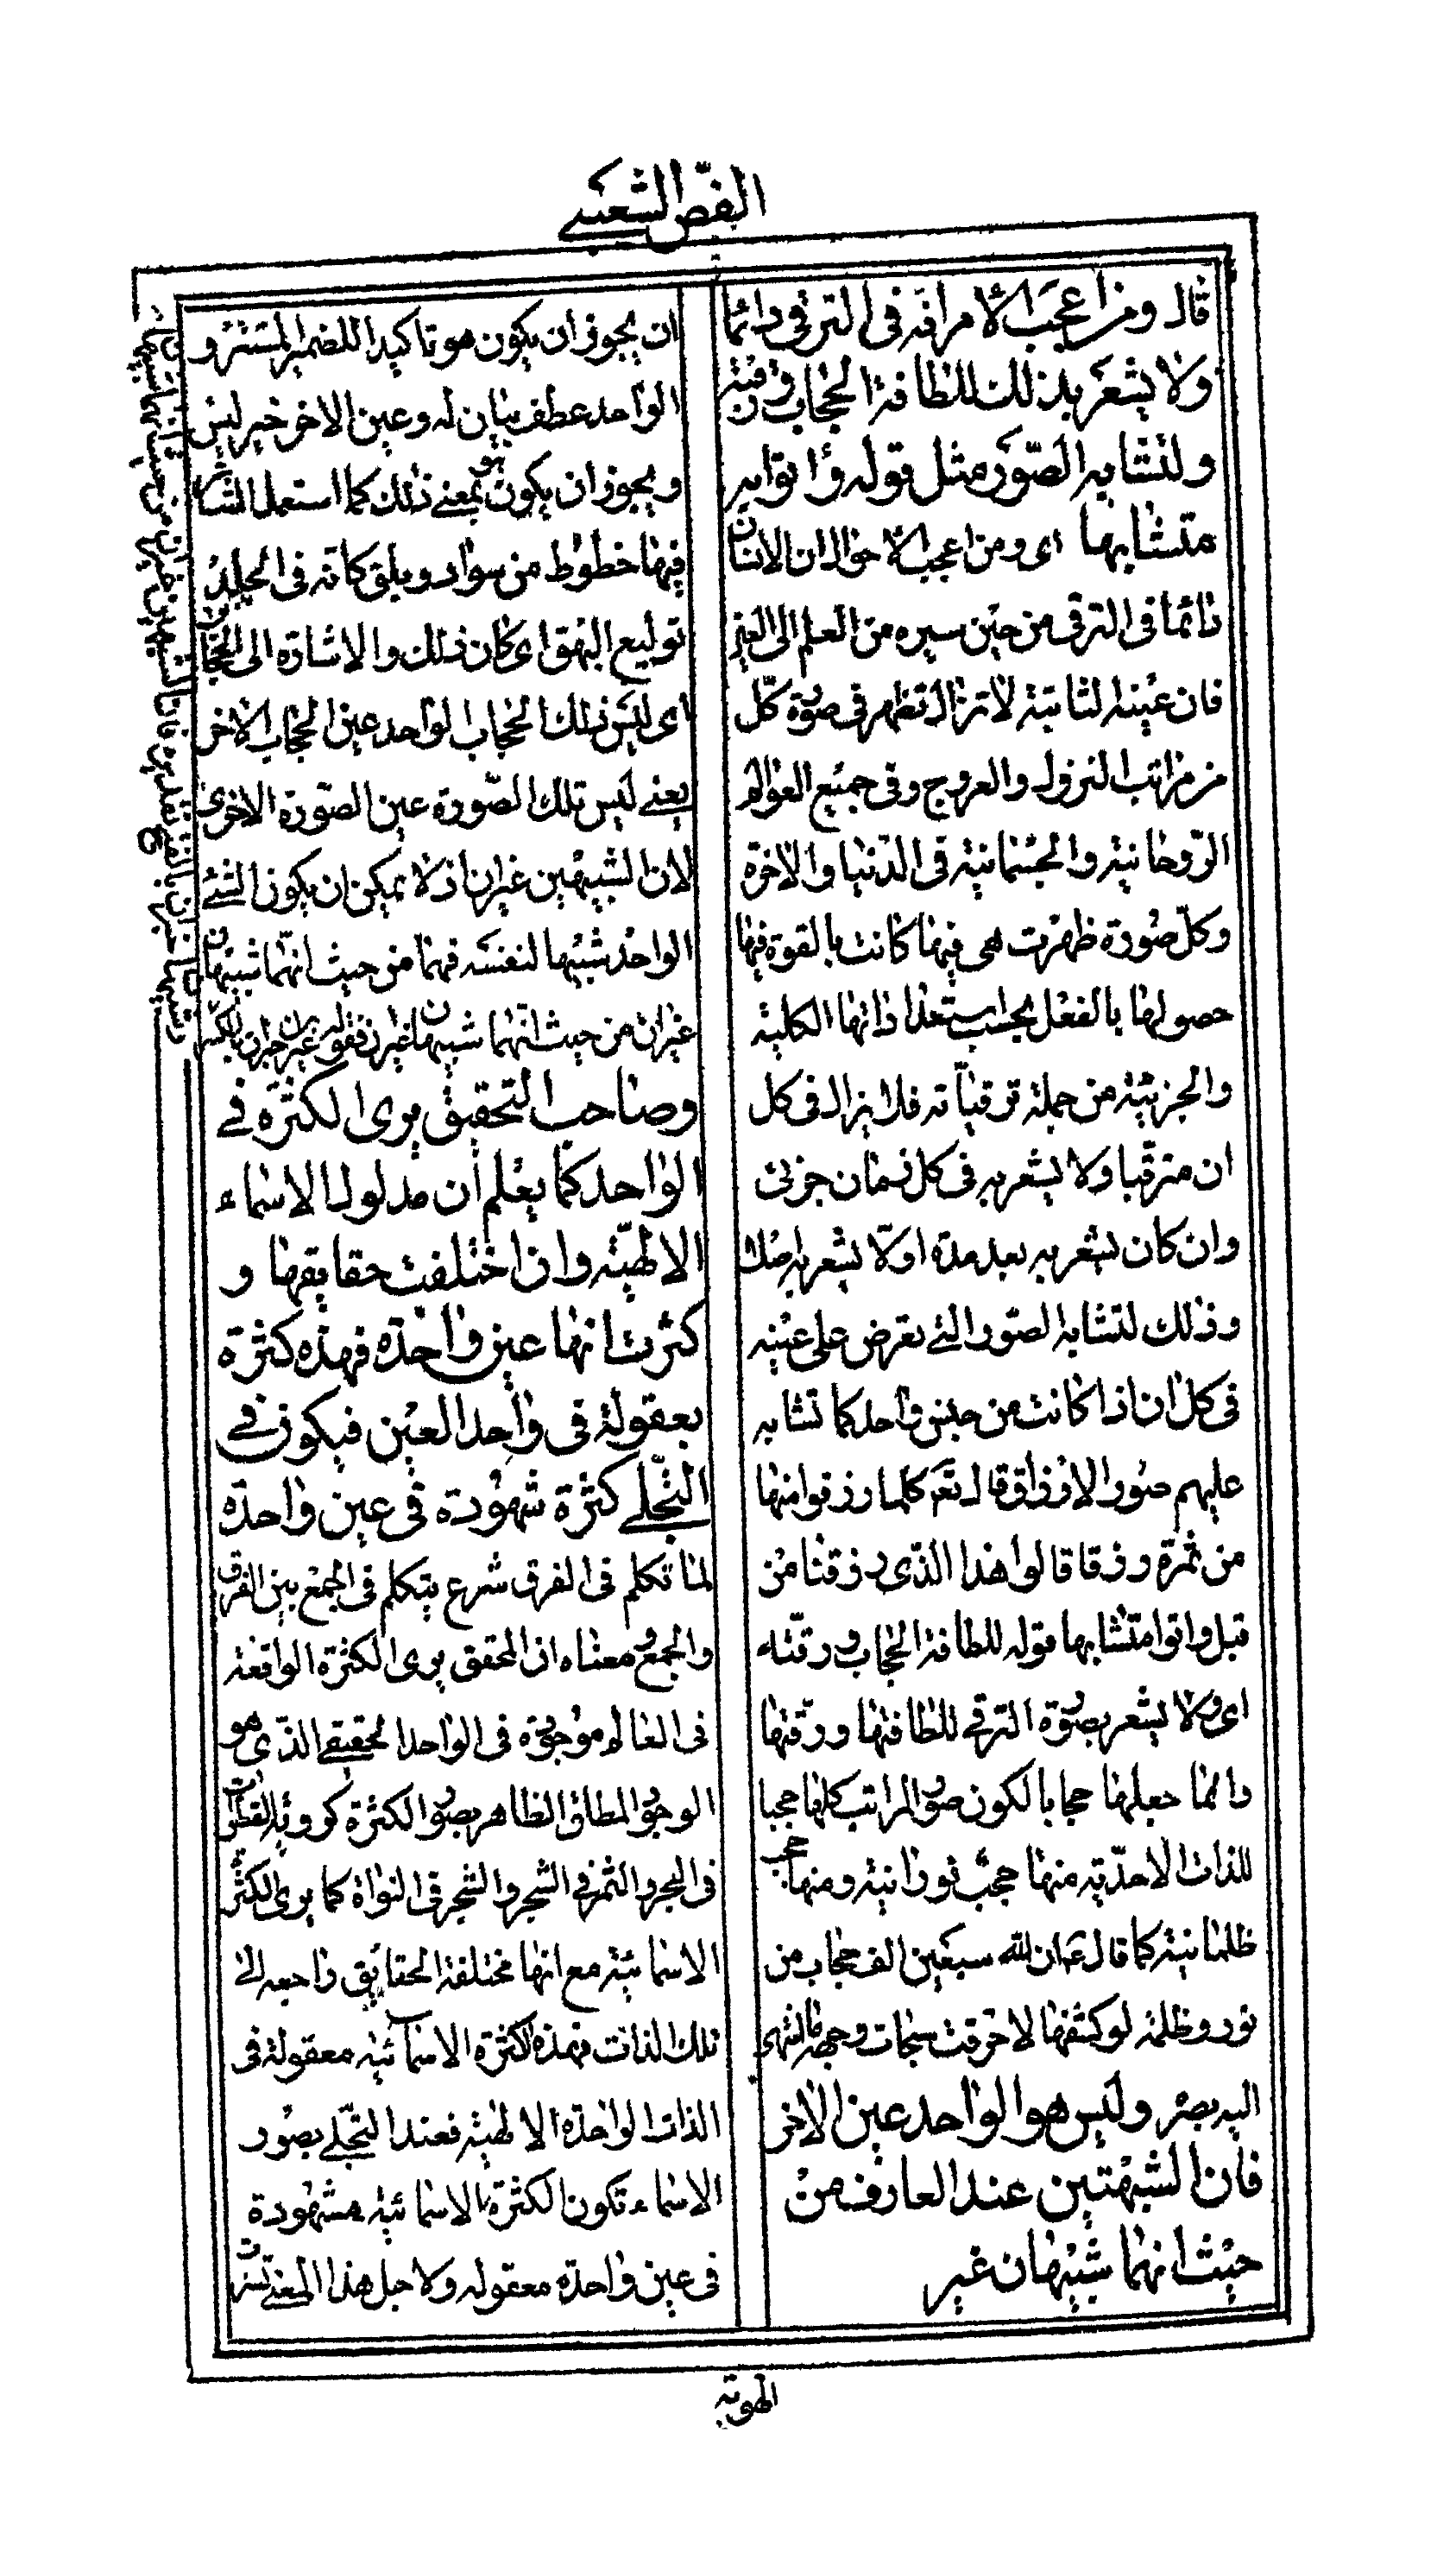 الفصّ الشعيبي
قال ومن اعجب الامر انه فى الترقى دائما
ولا يشعر بذلك للطافة الحجاب ورقته
ولتشابه الصّور مثل قوله واتوا به
متشابها اى ومن اعجب الاحوال ان الانسان
دائما فى الترقى من حين سيره من العلم الى العين
فان عينه الثابتة لا تزال تظهر فى صورة كلّ
من مراتب النزول والعروج وفى جميع العوالم
الرّوحانية والجسمانية فى الدنيا والاخرة
وكلّ صورة ظهرت هى فيها كانت بالقوة فيها
حصولها بالفعل بحسب استعدا داتها الكلية
والجزئية من جملة ترقيّاته فلا يزال فى كل
ان مترقّيا ولا يشعر به فى كل زمان جزئى
وان كان يشعر به بعد مدة اولا يشعر به اصلا
وذلك لتشابه الصّور التى تعرض على عينه
فى كل ان اذا كانت من جنس واحد كما تشابه
عليهم صور الارزاق قال تعم كلما رزقوا منها
من ثمرة رزقا قالوا هذا الذى رزقنا من
قبل واتوا متشابها قوله للطافة الحجاب ورقّته
اى ولا يشعر بصورة الترقى للطافتها ورقّتها
وانما جعلها حجابا لكون صور المراتب كلها حجبا
للذات الاحدّية منها حجب نورانية ومنها حجب
ظلمانية كما قال عم ان لله سبعين الف حجاب من
نور وظلمة لو كشفها لاحرقت سبحات وجهه ما انتهى
اليه بصره وليس هو الواحد عين الاخر
فان الشبهتين عند العارف من
حيث انهما شبيهان غير
ان يجوز ان يكون هو تاكيدا للضمير المستتر و
الواحد عطف بيان له وعين الاخر خبر ليس
ويجوز ان يكون هو بمعنى ذلك كما استعمل الشاعر
فيها خطوط من سواد وبلق كانه فى الجلد
توليع البهق اى كان ذلك والاشارة الى الحجاب
اى ليس ذلك الحجاب الواحد عين الحجاب الاخر
يعنى ليس تلك الصّورة عين الصّورة الاخرى
لان الشبيهين غيران اذ لا يمكن ان يكون الشئ
الواحد شبيها لنفسه فهما من حيث انّهما شبيهان
غيران من حيث انّهما شبيهان غيران فقوله غيران خبر ان بالكسر
وصاحب التحقيق يرى الكثرة فى
الواحد كما يعلم ان مدلول الاسماء
الالهيّة وان اختلفت حقايقها و
كثرت انها عين واحدة فهذه كثرة
معقولة فى واحد العين فيكون فى
التجلّى كثرة شهودة فى عين واحدة
لما تكلم فى الفرق شرع يتكلم فى الجمع بين الفرق
والجمع ومعناه ان المحقق يرى الكثرة الواقعة
فى العالم موجودة فى الواحد الحقيقى الذى هو
الوجود المطلق الظاهر بصور الكثرة كرؤية القطرات
فى البحر والثمر فى الشجر والشجر فى النواة كما يرى الكثرة
الاسمائية مع انها مختلفة الحقايق راجعه الى
تلك الذات فهذه الكثرة الاسمائية معقولة فى
الذات الواحدة الالهية فعند التجلّى بصور
الاسماء تكون الكثرة الاسمائية مشهودة
فى عين واحدة معقوله ولاجل هذا المعنى تسترت
الهوية